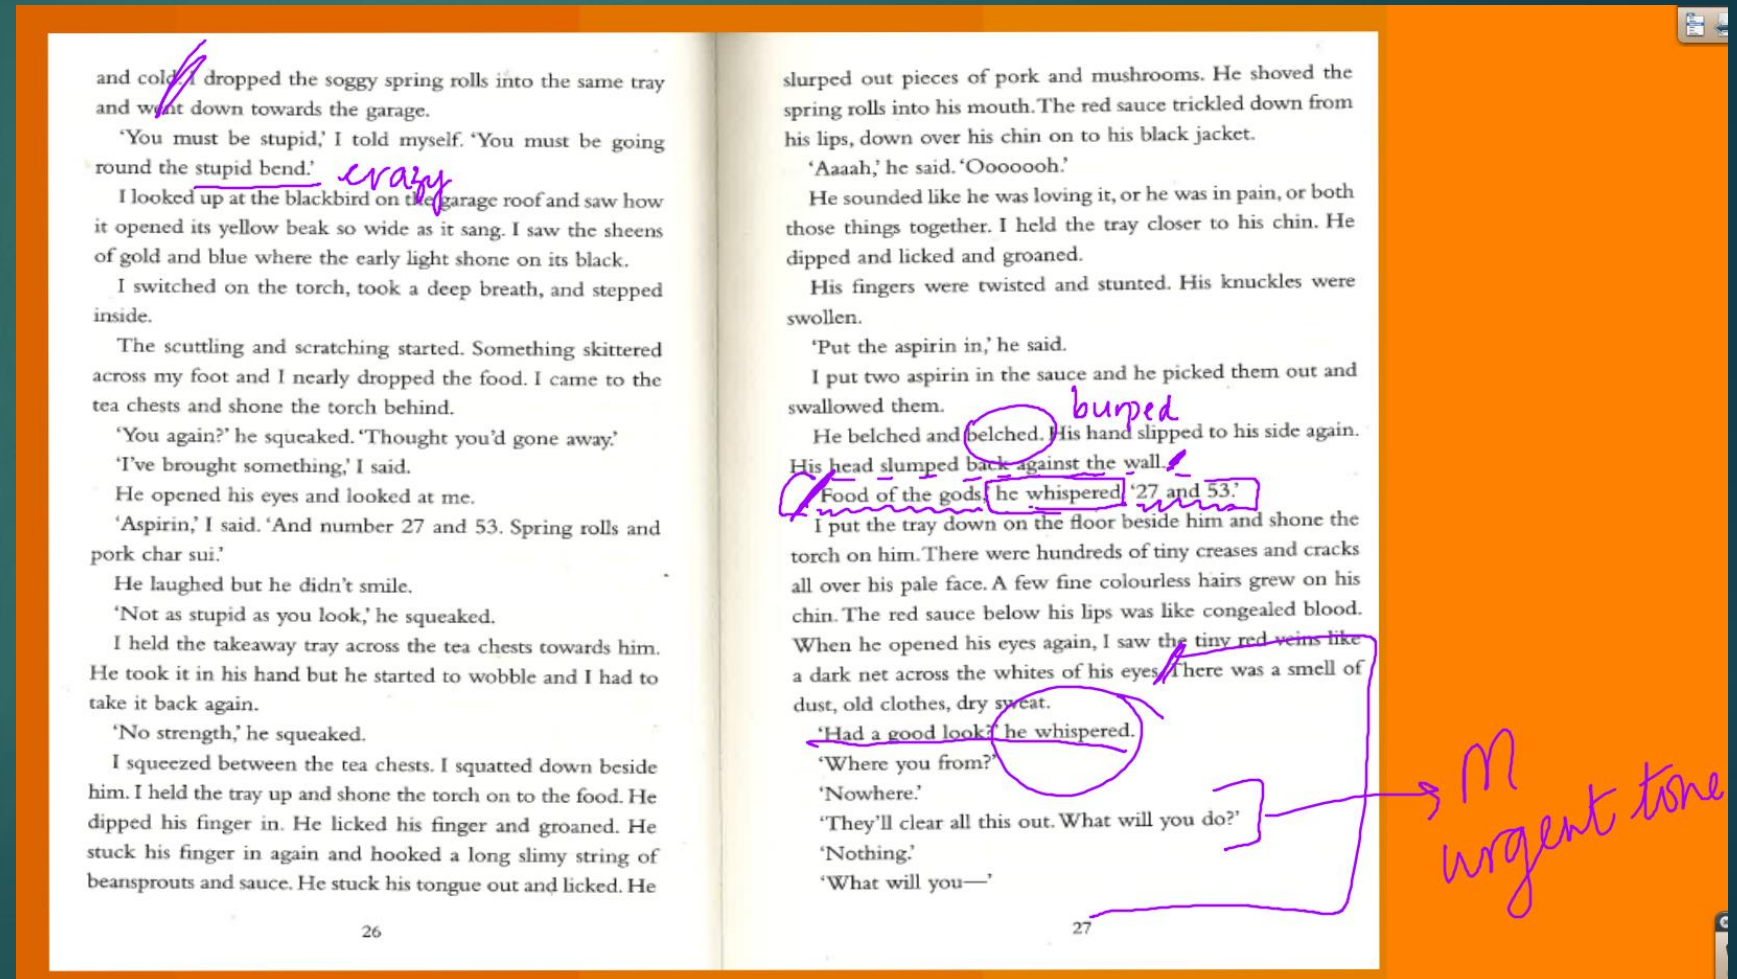 and cold. I dropped the soggy spring rolls into the same tray
and went down towards the garage.
‘You must be stupid,’ I told myself. ‘You must be going
round the stupid bend.’
crazy
I looked up at the blackbird on the garage roof and saw how
it opened its yellow beak so wide as it sang. I saw the sheens
of gold and blue where the early light shone on its black.
I switched on the torch, took a deep breath, and stepped
inside.
The scuttling and scratching started. Something skittered
across my foot and I nearly dropped the food. I came to the
tea chests and shone the torch behind.
‘You again?’ he squeaked. ‘Thought you’d gone away.’
‘I’ve brought something,’ I said.
He opened his eyes and looked at me.
‘Aspirin,’ I said. ‘And number 27 and 53. Spring rolls and
pork char sui.’
He laughed but he didn’t smile.
‘Not as stupid as you look,’ he squeaked.
I held the takeaway tray across the tea chests towards him.
He took it in his hand but he started to wobble and I had to
take it back again.
‘No strength,’ he squeaked.
I squeezed between the tea chests. I squatted down beside
him. I held the tray up and shone the torch on to the food. He
dipped his finger in. He licked his finger and groaned. He
stuck his finger in again and hooked a long slimy string of
beansprouts and sauce. He stuck his tongue out and licked. He
26
slurped out pieces of pork and mushrooms. He shoved the
spring rolls into his mouth. The red sauce trickled down from
his lips, down over his chin on to his black jacket.
‘Aaaah,’ he said. ‘Ooooooh.’
He sounded like he was loving it, or he was in pain, or both
those things together. I held the tray closer to his chin. He
dipped and licked and groaned.
His fingers were twisted and stunted. His knuckles were
swollen.
‘Put the aspirin in,’ he said.
I put two aspirin in the sauce and he picked them out and
swallowed them.
burped
He belched and belched. His hand slipped to his side again.
His head slumped back against the wall.
‘Food of the gods,’ he whispered. ‘27 and 53.’
I put the tray down on the floor beside him and shone the
torch on him. There were hundreds of tiny creases and cracks
all over his pale face. A few fine colourless hairs grew on his
chin. The red sauce below his lips was like congealed blood.
When he opened his eyes again, I saw the tiny red veins like
a dark net across the whites of his eyes. There was a smell of
dust, old clothes, dry sweat.
‘Had a good look?’ he whispered.
‘Where you from?’
‘Nowhere.’
‘They’ll clear all this out. What will you do?’
‘Nothing.’
‘What will you—’
27
M
urgent tone